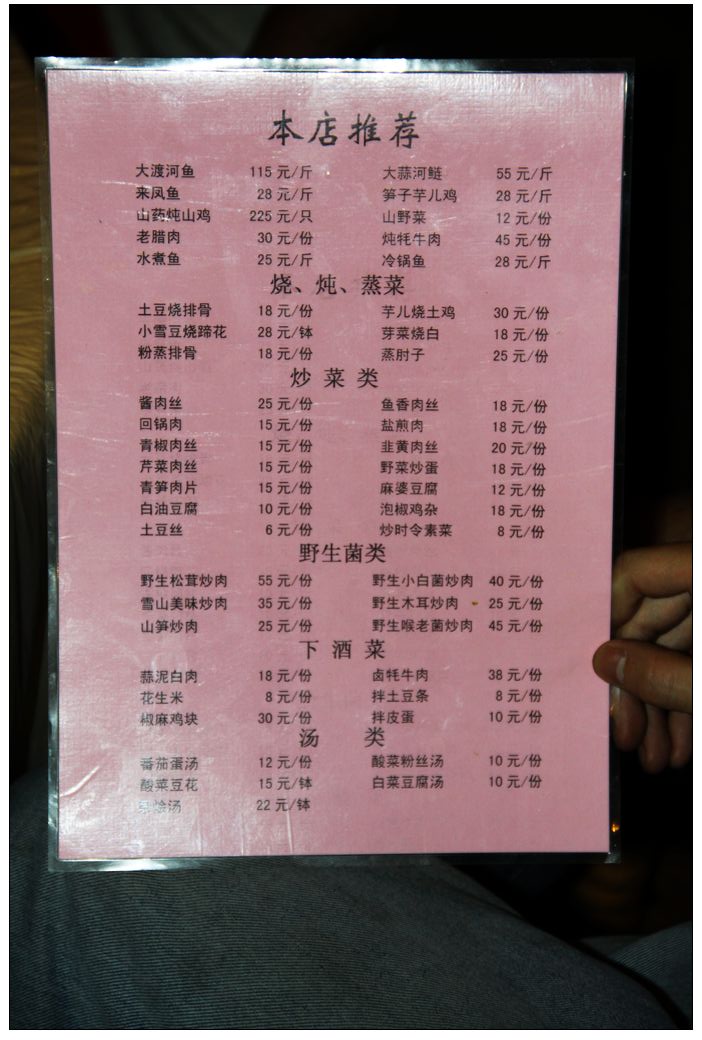 本店推荐
大渡河鱼 115 元/斤 大蒜河鲢 55 元/斤
来凤鱼 28 元/斤 笋子芋儿鸡 28 元/斤
山药炖山鸡 225 元/只 山野菜 12 元/份
老腊肉 30 元/份 炖牦牛肉 45 元/份
水煮鱼 25 元/斤 冷锅鱼 28 元/斤
烧、炖、蒸菜
土豆烧排骨 18 元/份 芋儿烧土鸡 30 元/份
小雪豆烧蹄花 28 元/钵 芽菜烧白 18 元/份
粉蒸排骨 18 元/份 蒸肘子 25 元/份
炒菜类
酱肉丝 25 元/份 鱼香肉丝 18 元/份
回锅肉 15 元/份 盐煎肉 18 元/份
青椒肉丝 15 元/份 韭黄肉丝 20 元/份
芹菜肉丝 15 元/份 野菜炒蛋 18 元/份
青笋肉片 15 元/份 麻婆豆腐 12 元/份
白油豆腐 10 元/份 泡椒鸡杂 18 元/份
土豆丝 6 元/份 炒时令素菜 8 元/份
野生菌类
野生松茸炒肉 55 元/份 野生小白菌炒肉 40 元/份
雪山美味炒肉 35 元/份 野生木耳炒肉 25 元/份
山笋炒肉 25 元/份 野生喉老菌炒肉 45 元/份
下酒菜
蒜泥白肉 18 元/份 卤牦牛肉 38 元/份
花生米 8 元/份 拌土豆条 8 元/份
椒麻鸡块 30 元/份 拌皮蛋 10 元/份
汤 类
番茄蛋汤 12 元/份 酸菜粉丝汤 10 元/份
酸菜豆花 15 元/钵 白菜豆腐汤 10 元/份
22 元/钵